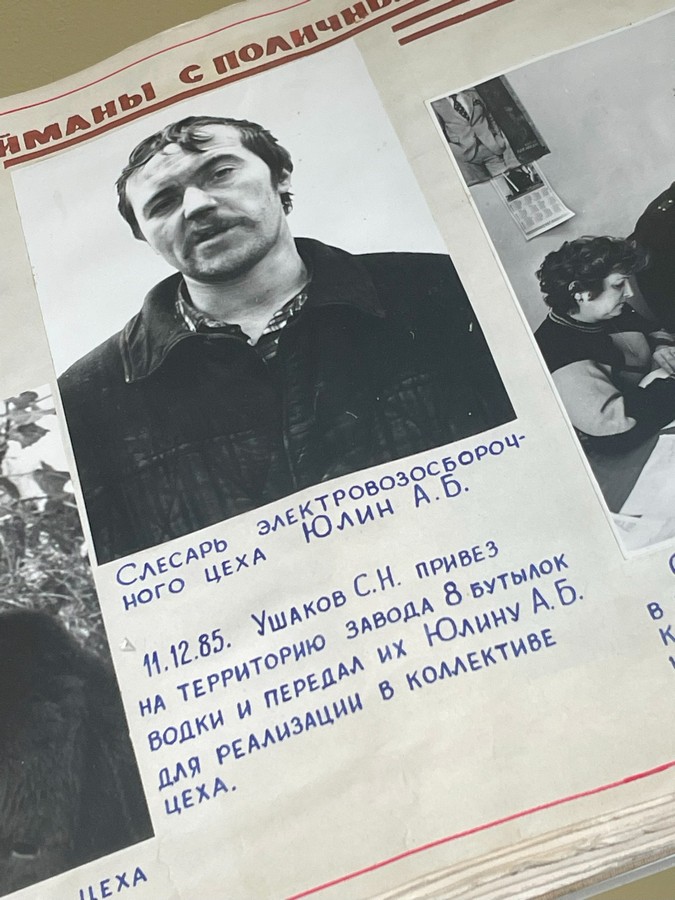 ЙМАНЫ С ПОЛИЧНЫ
СЛЕСАРЬ ЭЛЕКТРОВОЗОСБОРОЧ-
НОГО ЦЕХА ЮЛИН А.Б.
11.12.85. УШАКОВ С.Н. ПРИВЕЗ
НА ТЕРРИТОРИЮ ЗАВОДА 8 БУТЫЛОК
ВОДКИ И ПЕРЕДАЛ ИХ ЮЛИНУ А.Б.
ДЛЯ РЕАЛИЗАЦИИ В КОЛЛЕКТИВЕ
ЦЕХА.
ЦЕХА